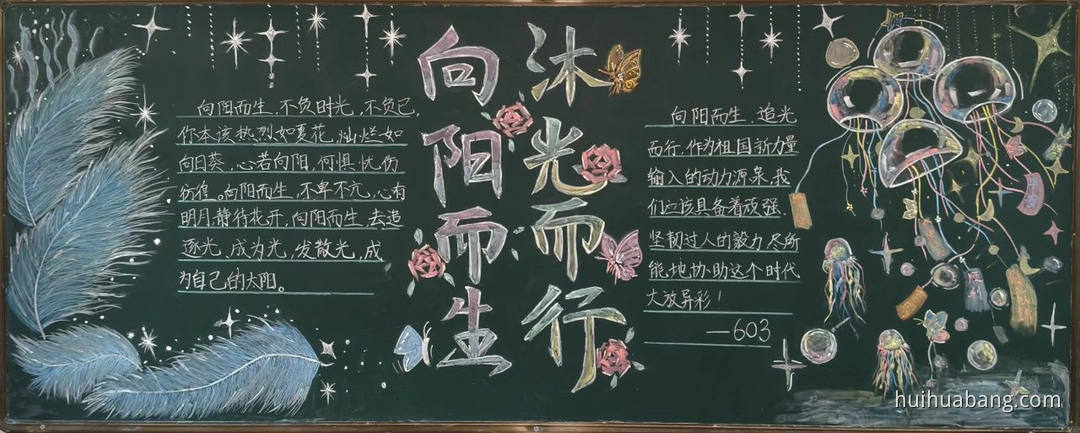 向阳而生
沐光而行
向阳而生.不负时光,不负己,
你本该热烈如夏花,灿烂如
向日葵,心若向阳,何惧忧伤
彷徨。向阳而生,不卑不亢,心有
明月,静待花开,向阳而生,去追
逐光,成为光,发散光,成
为自己的太阳。
向阳而生.追光
而行.作为祖国新力量
输入的动力源泉,我
们应该具备着顽强、
坚韧过人的毅力,尽所
能地协助这个时代
大放异彩!
—603
huihuabang.com